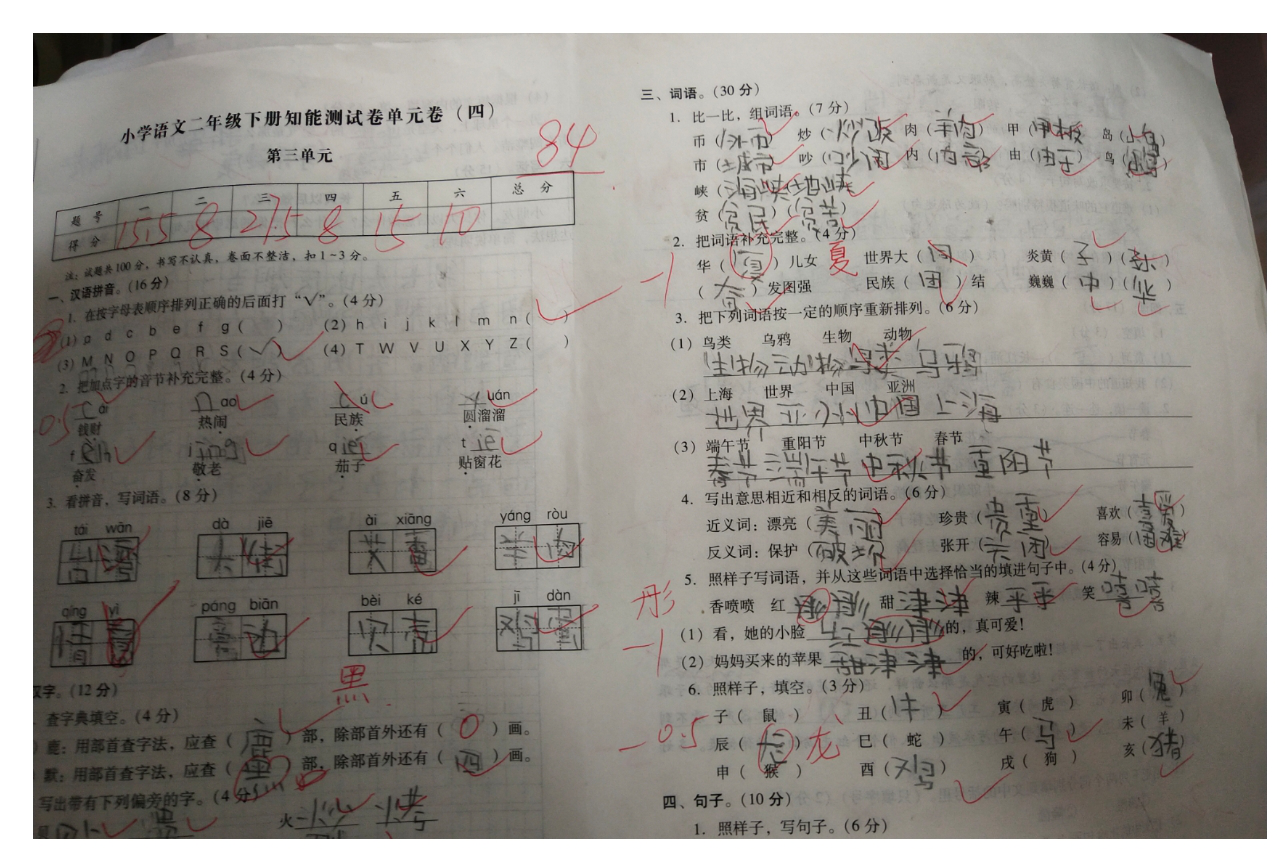 小学语文二年级下册知能测试卷单元卷（四）
第三单元
84
题 号 一 二 三 四 五 六 总 分
得 分 15.5 8 27.5 8 15 10
注：试题共100分，书写不认真，卷面不整洁，扣1~3分。
一、汉语拼音。(16分)
1. 在按字母表顺序排列正确的后面打“√”。(4分)
(1) a d c b e f g ( ) (2) h i j k l m n ( )
(3) M N O P Q R S (√) (4) T W V U X Y Z ( )
2. 把加点字的音节补充完整。(4分)
c ái n ao c ú y uán
钱财 热闹 民族 圆溜溜
0.5
f èn j ìng q ié t iē
奋发 敬老 茄子 贴窗花
3. 看拼音，写词语。(8分)
tái wān dà jiē ài xiāng yáng ròu
台湾 大街 艾香 羊肉
qíng yì páng biān bèi ké jī dàn
情 旁边 贝壳 鸡蛋
汉字。(12分)
黑
查字典填空。(4分)
鹿：用部首查字法，应查（鹿）部，除部首外还有（0）画。
默：用部首查字法，应查（ ）部，除部首外还有（四）画。
写出带有下列偏旁的字。(4分)
火
三、词语。(30分)
1. 比一比，组词语。(7分)
币（外币） 炒（炒饭） 肉（羊肉） 甲（甲板） 岛（小岛）
市（城市） 吵（吵闹） 内（内部） 由（由于） 鸟（ ）
峡（海峡）（地峡）
贫（贫民）（贫苦）
2. 把词语补充完整。(4分)
-1
华（ ）儿女 夏 世界大（ ） 炎黄（子）（孙）
（奋）发图强 民族（团）结 巍巍（中）（华）
3. 把下列词语按一定的顺序重新排列。(6分)
(1) 鸟类 乌鸦 生物 动物
生物 动物 鸟类 乌鸦
(2) 上海 世界 中国 亚洲
世界 亚洲 中国 上海
(3) 端午节 重阳节 中秋节 春节
春节 端午节 中秋节 重阳节
4. 写出意思相近和相反的词语。(6分)
近义词：漂亮（美丽） 珍贵（贵重） 喜欢（喜爱）
反义词：保护（破坏） 张开（关闭） 容易（困难）
5. 照样子写词语，并从这些词语中选择恰当的填进句子中。(4分)
彤
香喷喷 红 甜津津 辣乎乎 笑嘻嘻
(1) 看，她的小脸 红 的，真可爱！
-1
(2) 妈妈买来的苹果 甜津津 的，可好吃啦！
6. 照样子，填空。(3分)
子（鼠） 丑（牛） 寅（虎） 卯（兔）
-0.5
辰（ ） 龙 巳（蛇） 午（马） 未（羊）
申（猴） 酉（鸡） 戌（狗） 亥（猪）
四、句子。(10分)
1. 照样子，写句子。(6分)